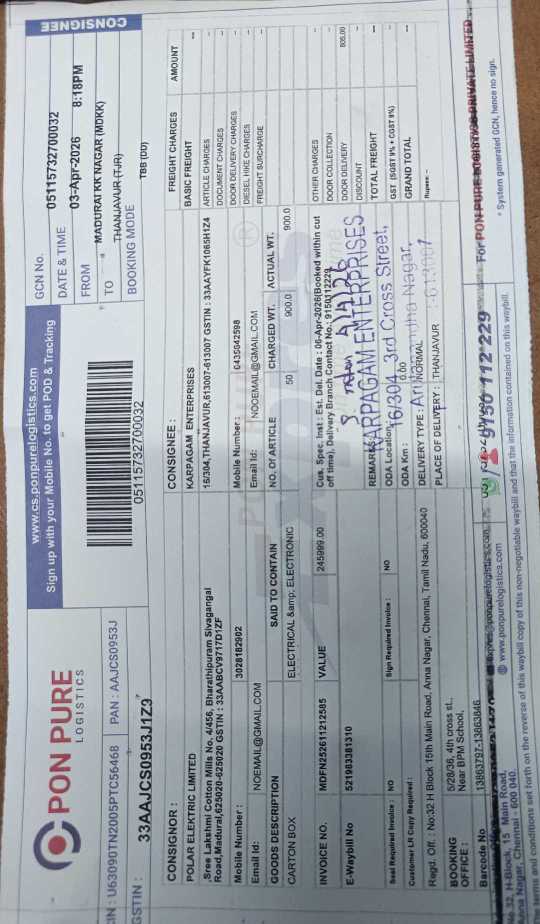 CONSIGNEE
PON PURE
LOGISTICS
www.cs.ponpurelogistics.com
Sign up with your Mobile No. to get POD & Tracking
CIN : U63090TN2005PTC56468 PAN : AAJCS0953J
GSTIN : 33AAJCS0953J1Z9
05115732700032
GCN No. 05115732700032
DATE & TIME 03-Apr-2026 8:18PM
FROM MADURAI KK NAGAR (MDKK)
TO THANJAVUR (TJR)
BOOKING MODE TBB (DD)
CONSIGNOR :
POLAR ELECTRIC LIMITED
,Sree Lakshmi Cotton Mills No. 4/456, Bharathipuram Sivagangai
Road,Madurai,625020-625020 GSTIN : 33AABCV9717D1ZF
Mobile Number : 3028182002
Email Id: NOEMAIL@GMAIL.COM
CONSIGNEE :
KARPAGAM ENTERPRISES
16/304,THANJAVUR,613007-613007 GSTIN : 33AAYFK1065H1Z4
Mobile Number : 0435042598
Email Id: NOOEMAIL@GMAIL.COM
GOODS DESCRIPTION SAID TO CONTAIN NO. Of ARTICLE CHARGED WT. ACTUAL WT.
CARTON BOX ELECTRICAL &amp; ELECTRONIC 50 900.0 900.0
INVOICE NO. MDFN252611212585 VALUE 245999.00
E-Waybill No 521983381310
Cus. Spec. Inst : Est. Del. Date : 06-Apr-2026(Booked within cut
off time), Delivery Branch Contact No.: 9150112229
REMARKS
KARPAGAM ENTERPRISES
16/304 3rd Cross Street,
Nagar,
613007
Seal Required Invoice : NO Sign Required Invoice : NO
Customer LR Copy Required :
ODA Location:
ODA Km : 0.00
DELIVERY TYPE : NORMAL
PLACE OF DELIVERY : THANJAVUR
Regd. Off. : No:32 H Block 15th Main Road, Anna Nagar, Chennai, Tamil Nadu, 600040
BOOKING OFFICE : 5/28/36, 4th cross st.,
Near BPM School,
Barcode No 13863797-13863846
FREIGHT CHARGES AMOUNT
BASIC FREIGHT --
ARTICLE CHARGES -
DOCUMENT CHARGES -
DOOR DELIVERY CHARGES -
DIESEL HIKE CHARGES -
FREIGHT SURCHARGE -
OTHER CHARGES -
DOOR COLLECTION -
DOOR DELIVERY 805.00
DISCOUNT -
TOTAL FREIGHT --
GST (SGST 9% + CGST 9%) -
GRAND TOTAL --
Rupees: -
For PON PURE LOGISTICS PRIVATE LIMITED
* System generated GCN, hence no sign.
9150 112 229
www.ponpurelogistics.com
No.32, H-Block, 15 Main Road,
Anna Nagar, Chennai - 600 040.
terms and conditions set forth on the reverse of this waybill copy of this non-negotiable waybill and that the information contained on this waybill.